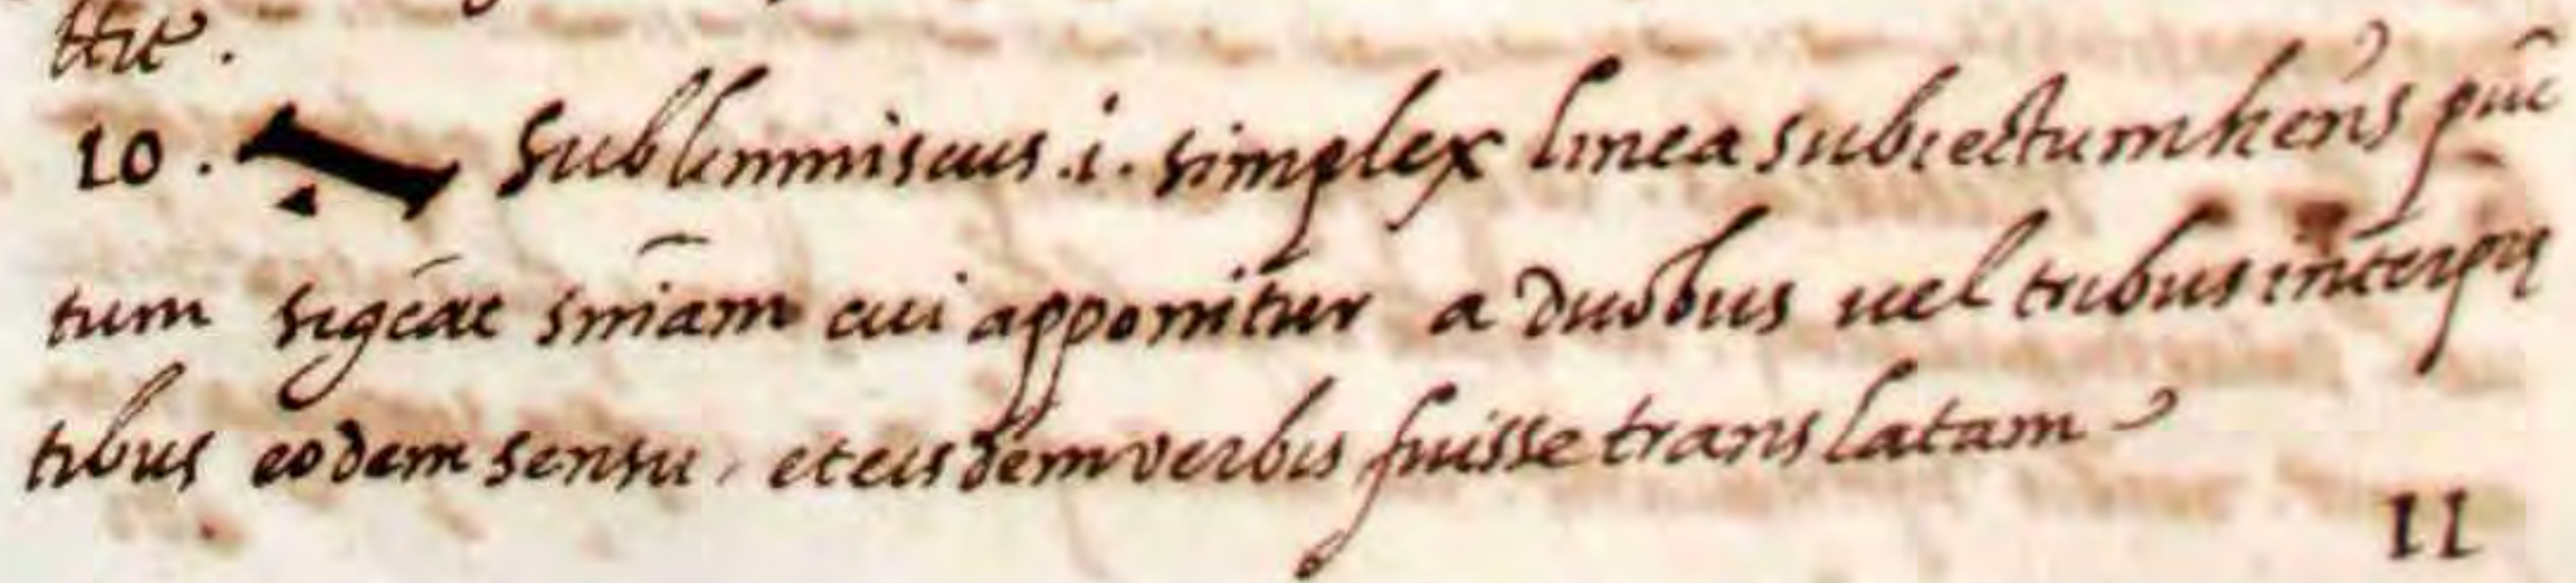 10. Sublimniscus .i. simplex linea subiectum hens pūc
tum sigcāt sniam cui apponitur a duobus uel tribus interpr̄
tibus eodem sensu, et eisdem verbis fuisse translatam
11